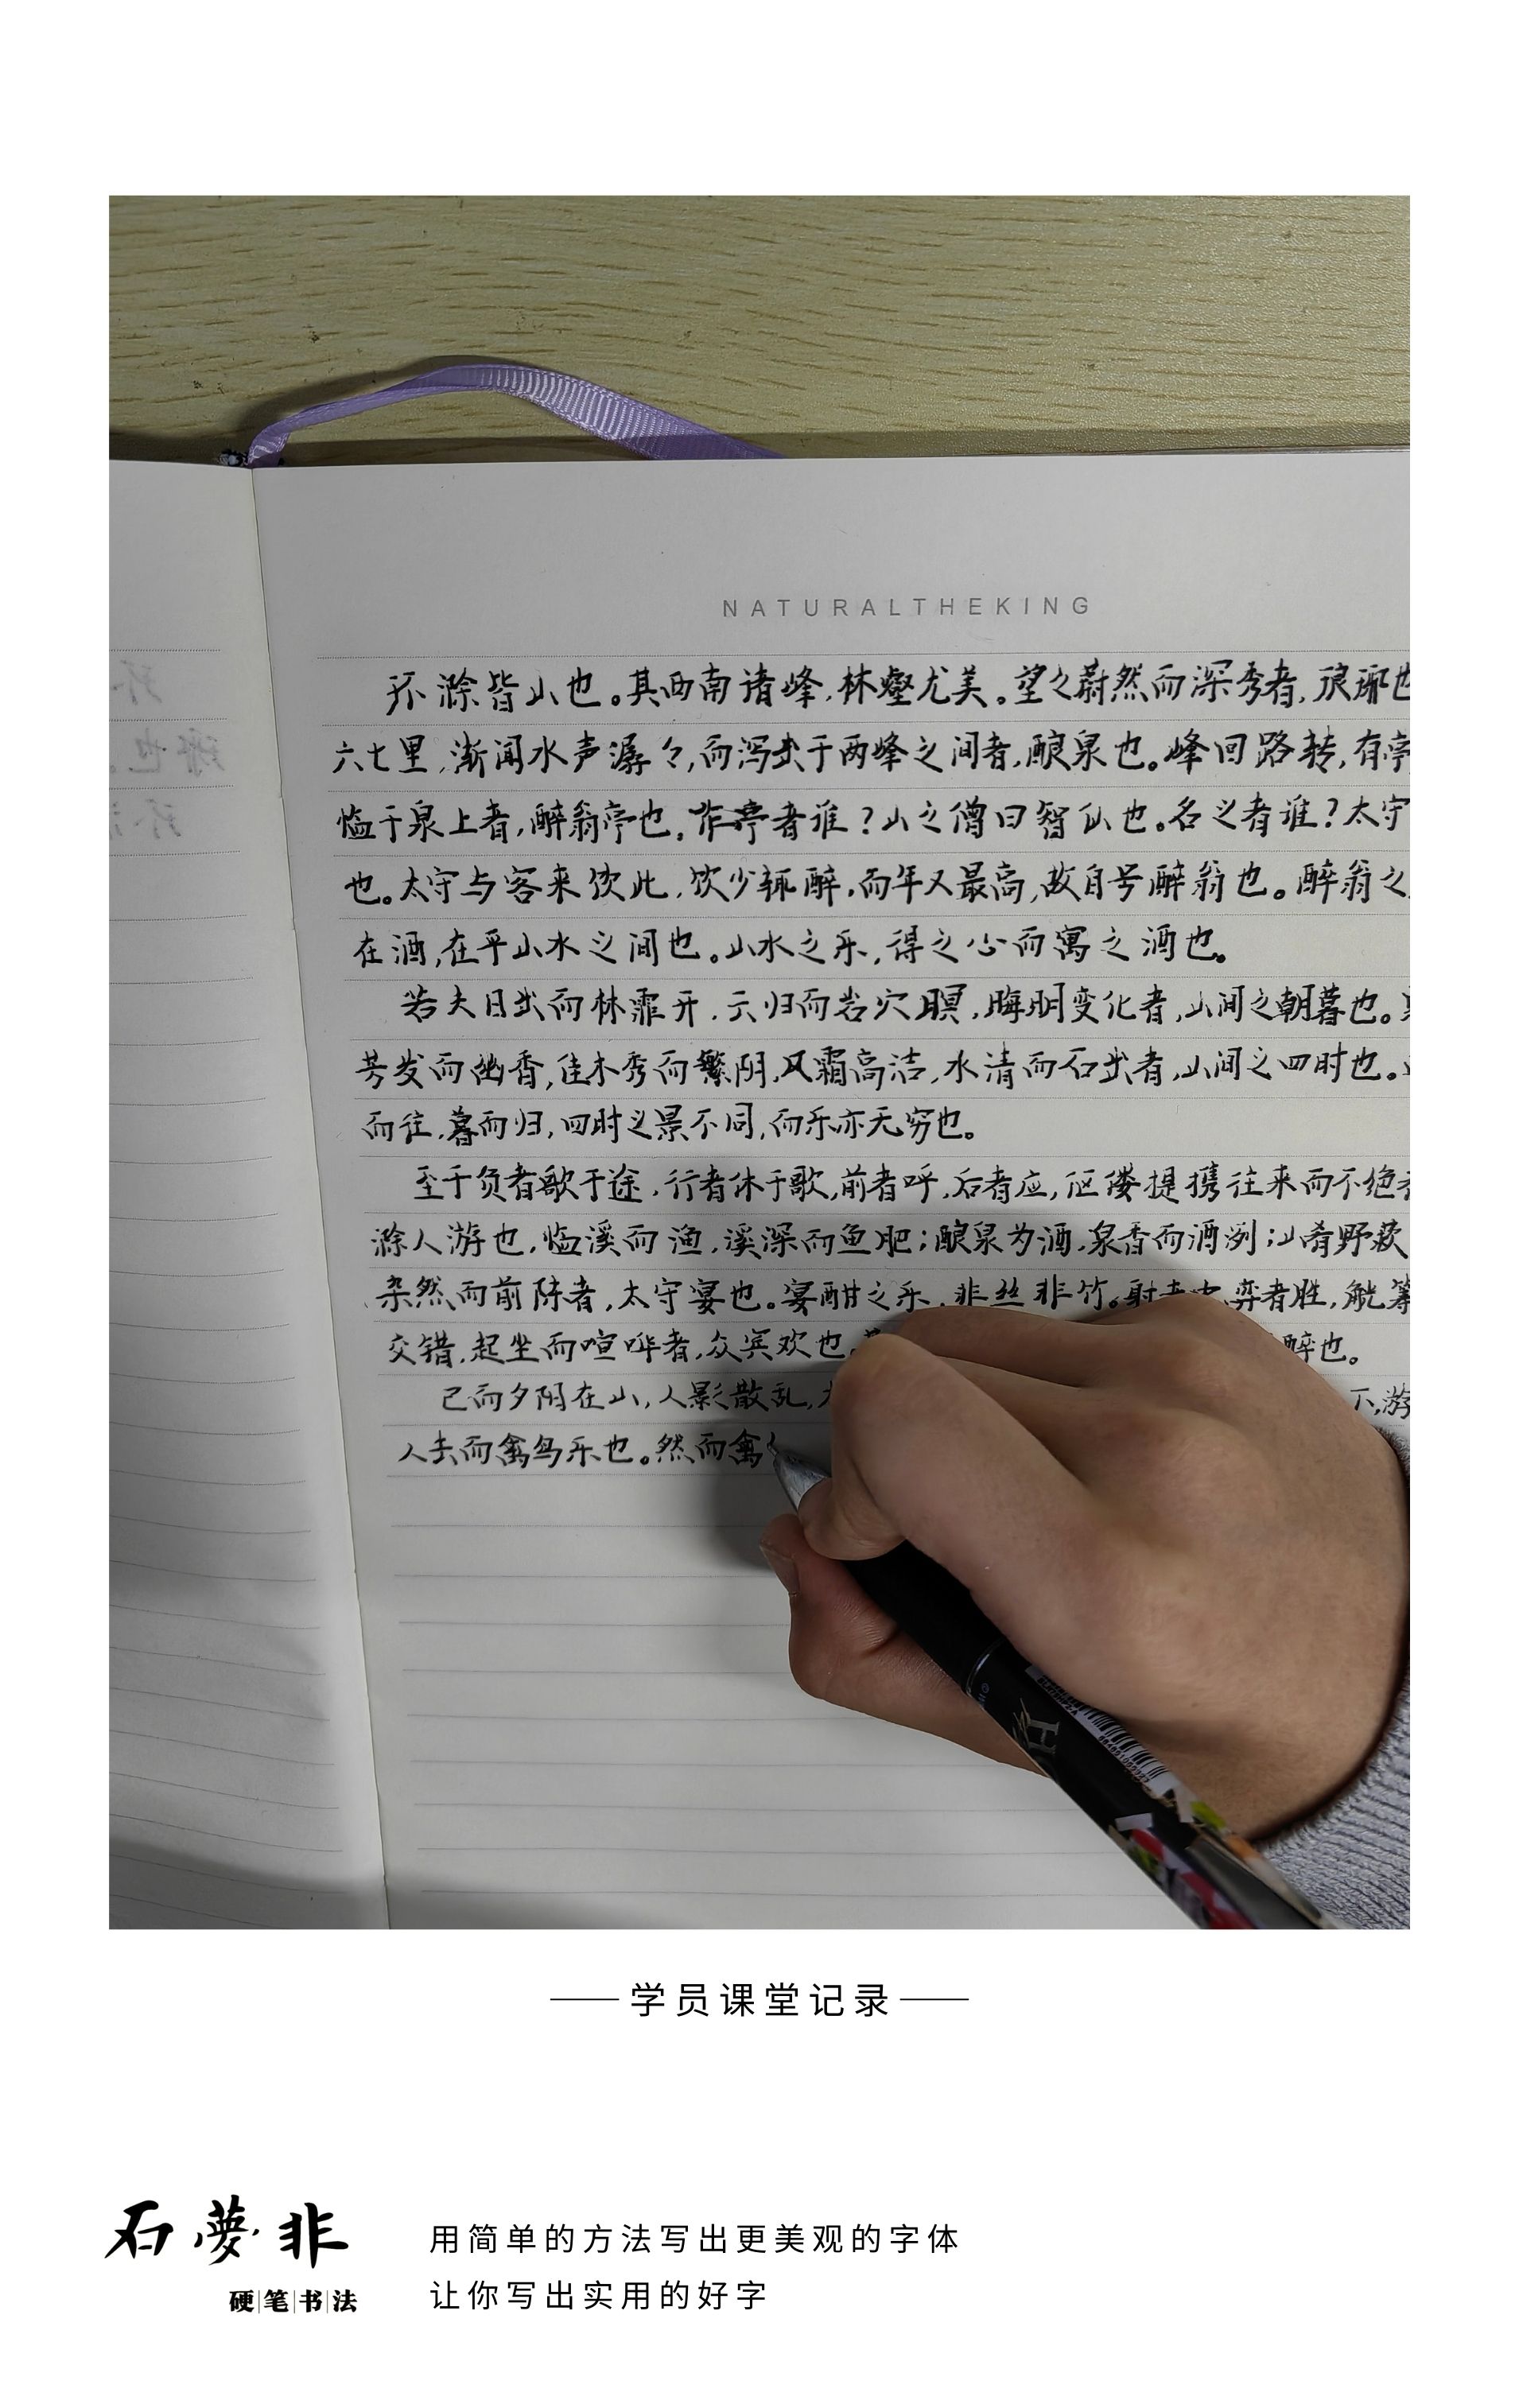 NATURALTHEKING
环滁皆山也。其西南诸峰,林壑尤美。望之蔚然而深秀者,琅琊也
六七里,渐闻水声潺々,而泻出于两峰之间者,酿泉也。峰回路转,有亭
临于泉上者,醉翁亭也。作亭者谁?山之僧曰智仙也。名之者谁?太守
也。太守与客来饮此,饮少辄醉,而年又最高,故自号醉翁也。醉翁之
在酒,在乎山水之间也。山水之乐,得之心而寓之酒也。
若夫日出而林霏开,云归而岩穴暝,晦明变化者,山间之朝暮也。
芳发而幽香,佳木秀而繁阴,风霜高洁,水清而石出者,山间之四时也。
而往,暮而归,四时之景不同,而乐亦无穷也。
至于负者歌于途,行者休于歌,前者呼,后者应,伛偻提携往来而不绝
滁人游也,临溪而渔,溪深而鱼肥;酿泉为酒,泉香而酒洌;山肴野蔌
杂然而前陈者,太守宴也。宴酣之乐,非丝非竹。射者中,弈者胜,觥筹
交错,起坐而喧哗者,众宾欢也 醉也。
已而夕阴在山,人影散乱, 下,游
人去而禽鸟乐也。然而禽
学员课堂记录
石夢非
硬笔书法
用简单的方法写出更美观的字体
让你写出实用的好字